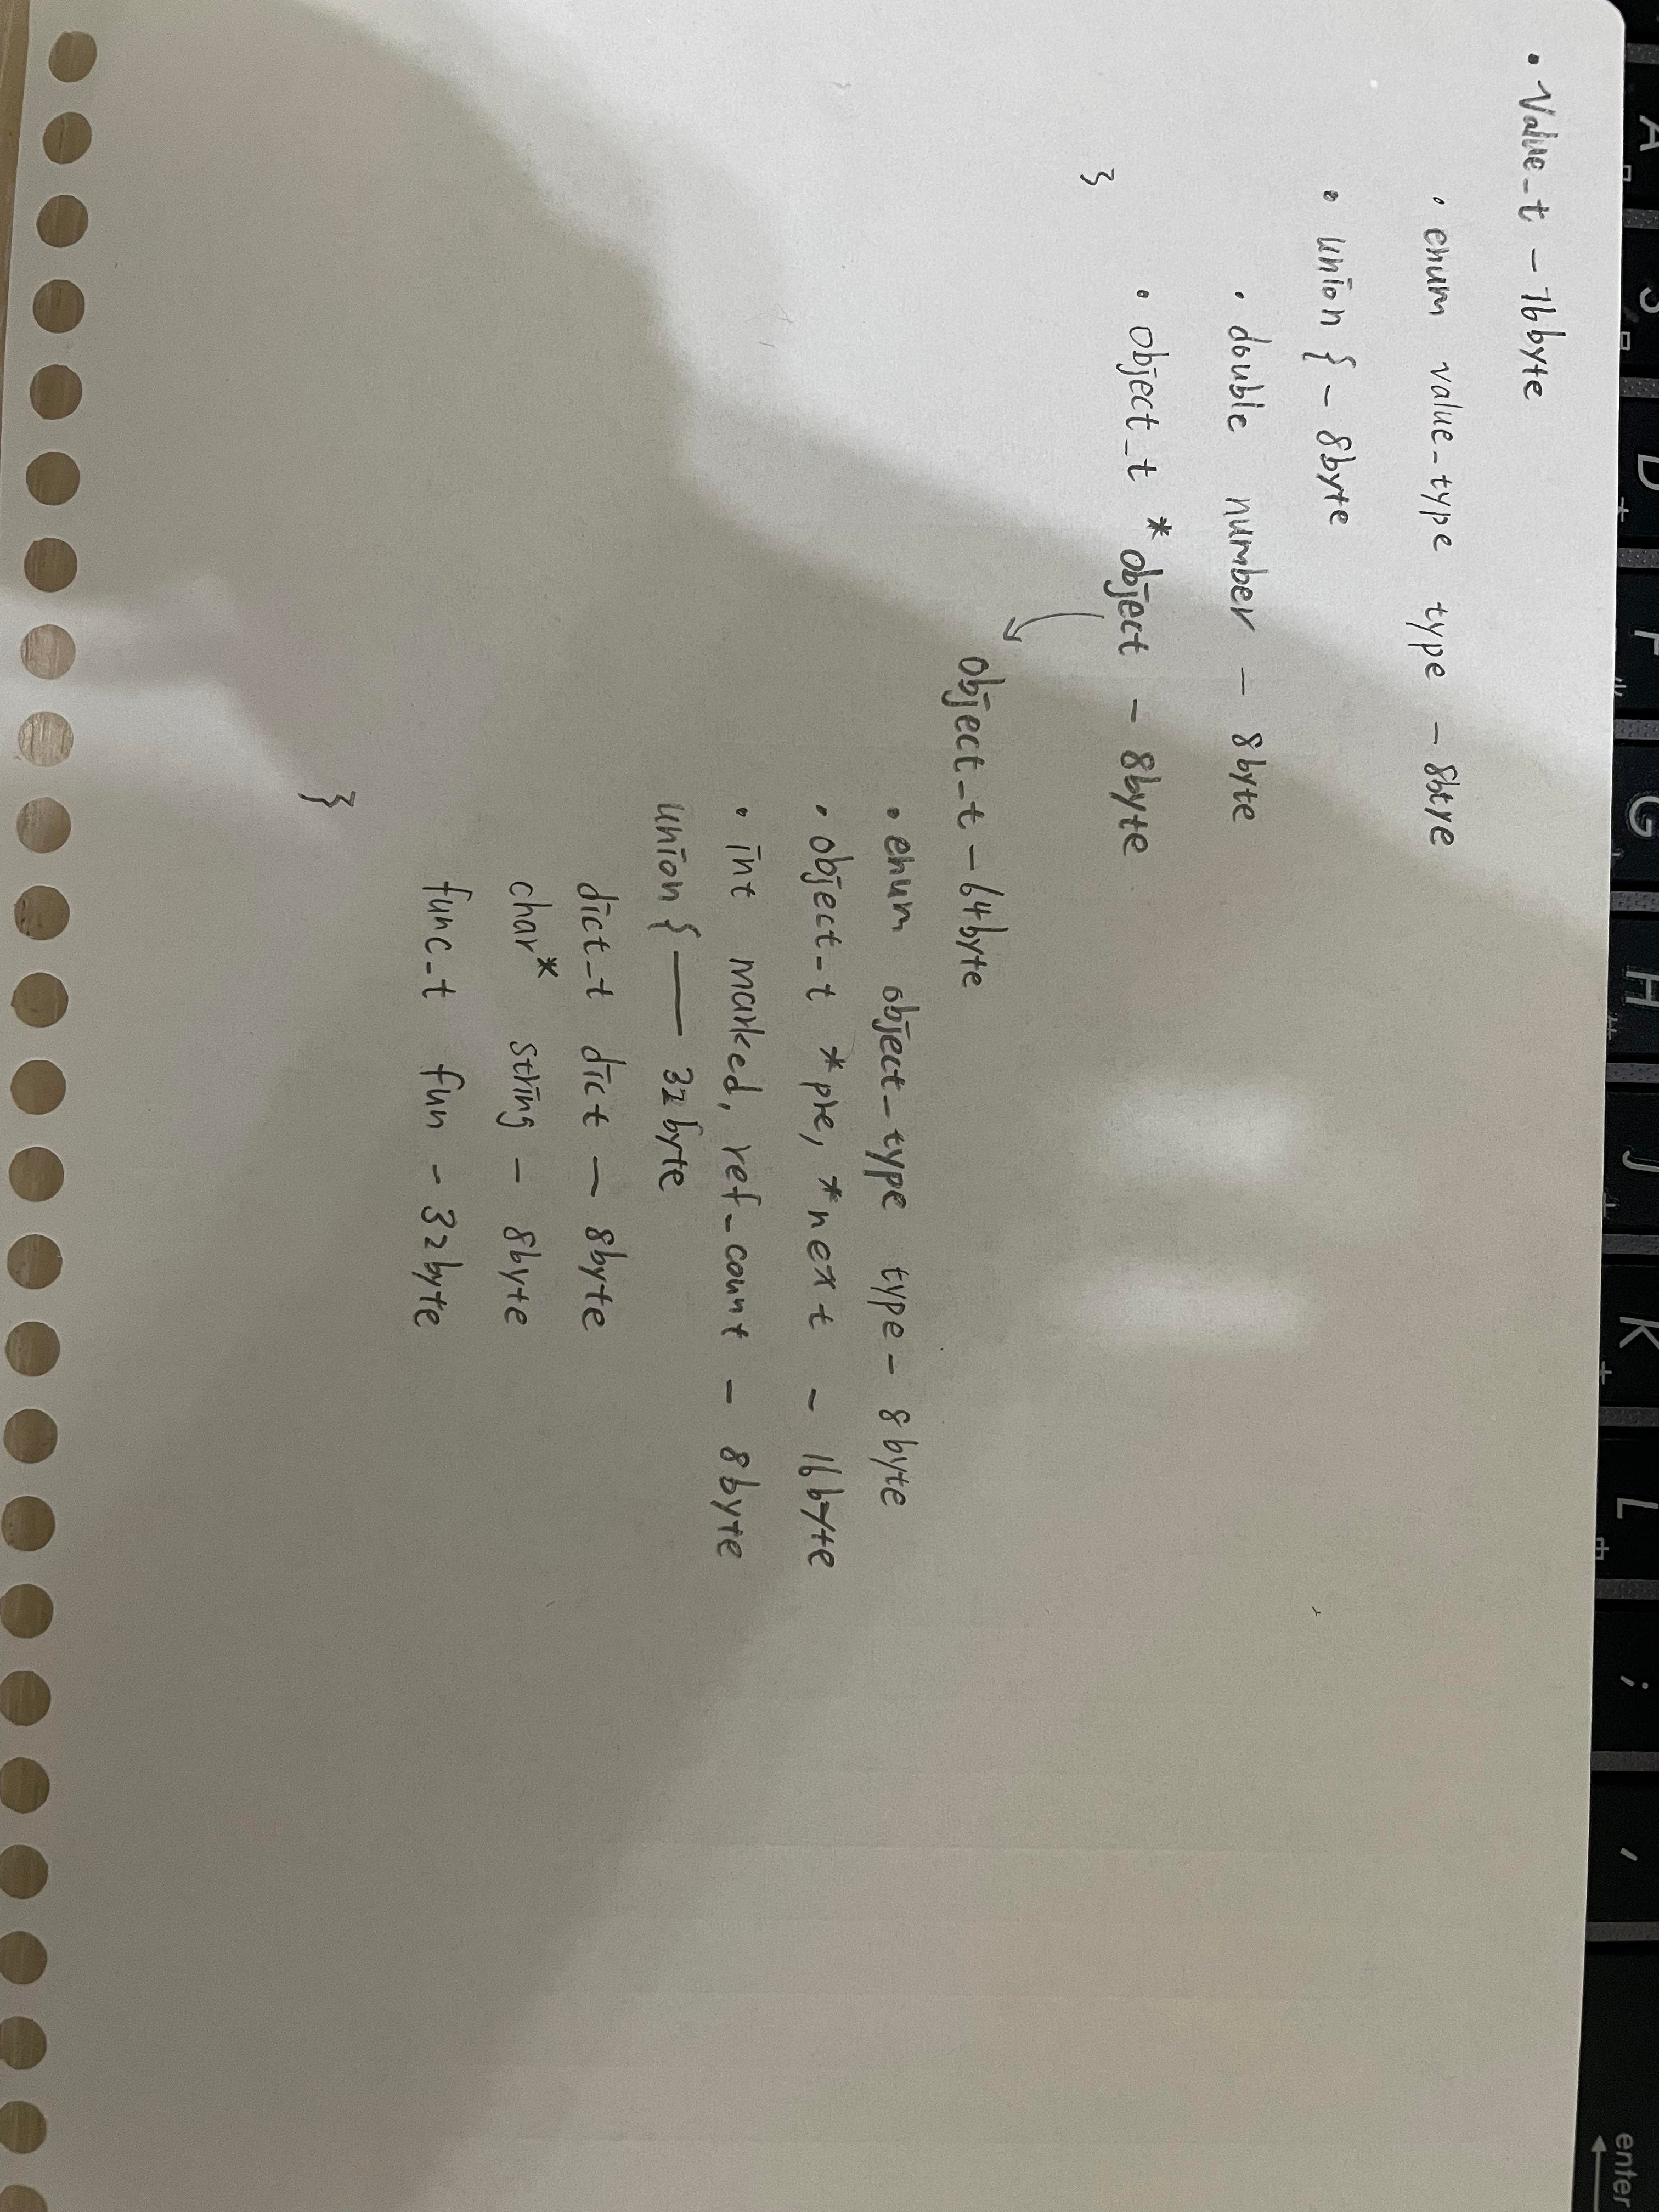 A S D F G H J K L ; , enter
• Value_t – 16byte
• enum value_type type – 8btye
• union { – 8byte
• double number – 8byte
• object_t *object – 8byte
}
object_t – 64byte
• enum object_type type – 8byte
• object_t *pre, *next – 16byte
• int marked, ref_count – 8byte
union { — 32byte
dict_t dict — 8byte
char* string – 8byte
func_t fun – 32byte
}